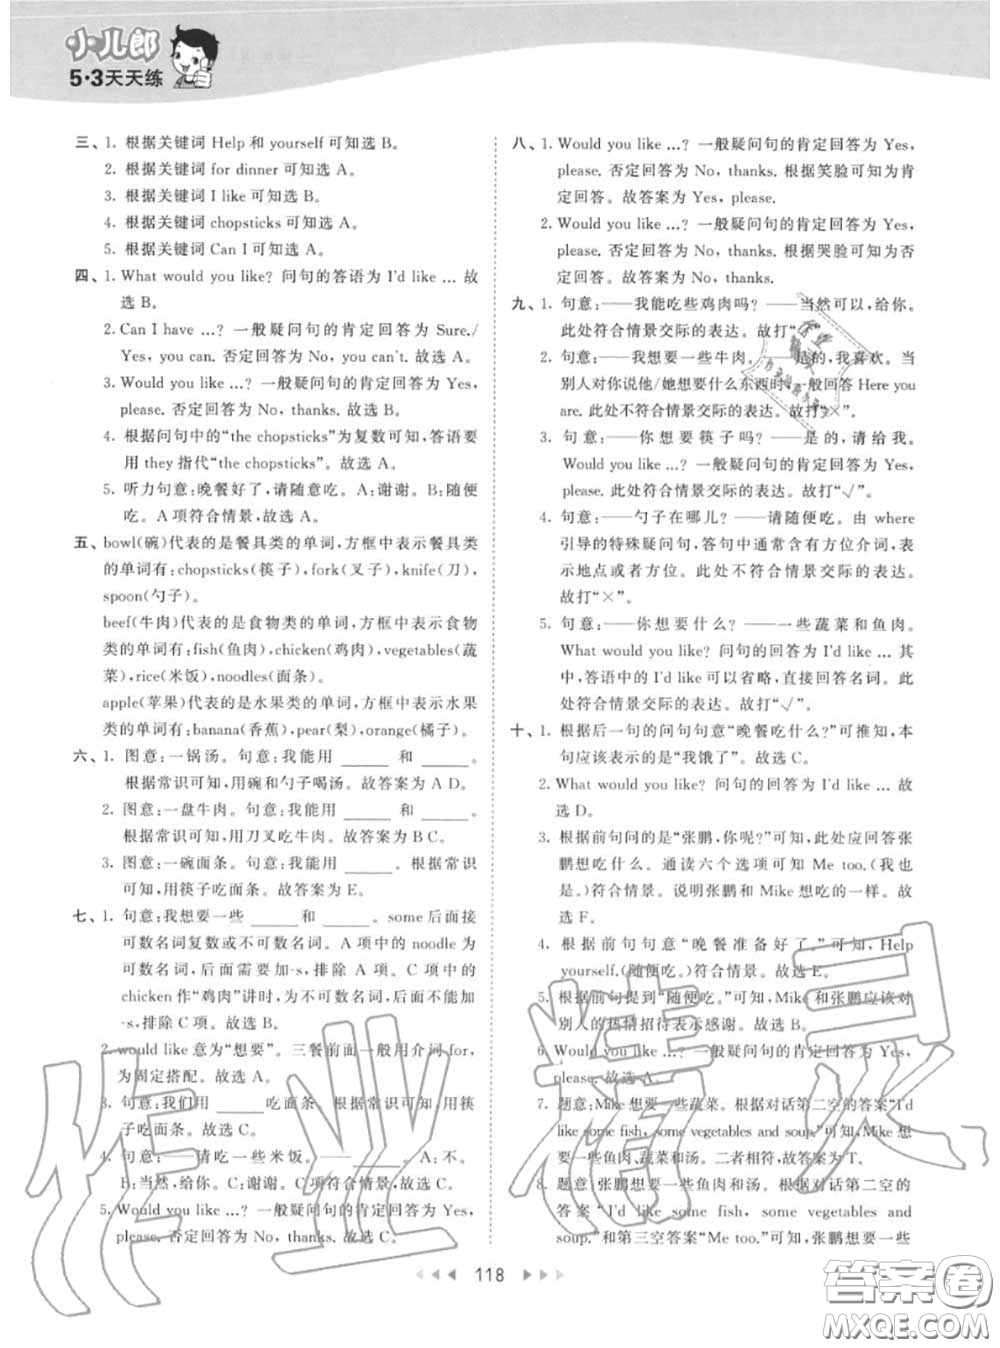 小儿郎
5·3天天练
三、1. 根据关键词 Help 和 yourself 可知选 B。
2. 根据关键词 for dinner 可知选 A。
3. 根据关键词 I like 可知选 B。
4. 根据关键词 chopsticks 可知选 A。
5. 根据关键词 Can I 可知选 A。
四、1. What would you like? 问句的答语为 I'd like … 故
选 B。
2. Can I have …? 一般疑问句的肯定回答为 Sure./
Yes, you can. 否定回答为 No, you can't. 故选 A。
3. Would you like …? 一般疑问句的肯定回答为 Yes,
please. 否定回答为 No, thanks. 故选 B。
4. 根据问句中的“the chopsticks”为复数可知,答语要
用 they 指代“the chopsticks”。故选 A。
5. 听力句意:晚餐好了,请随意吃。A:谢谢。B:随便
吃。A 项符合情景,故选 A。
五、bowl(碗)代表的是餐具类的单词,方框中表示餐具类
的单词有:chopsticks(筷子),fork(叉子),knife(刀),
spoon(勺子)。
beef(牛肉)代表的是食物类的单词,方框中表示食物
类的单词有:fish(鱼肉),chicken(鸡肉),vegetables(蔬
菜),rice(米饭),noodles(面条)。
apple(苹果)代表的是水果类的单词,方框中表示水果
类的单词有:banana(香蕉),pear(梨),orange(橘子)。
六、1. 图意:一锅汤。句意:我能用 ______ 和 ______。
根据常识可知,用碗和勺子喝汤。故答案为 A D。
2. 图意:一盘牛肉。句意:我能用 ______ 和 ______。
根据常识可知,用刀叉吃牛肉。故答案为 B C。
3. 图意:一碗面条。句意:我能用 ______。根据常识
可知,用筷子吃面条。故答案为 E。
七、1. 句意:我想要一些 ______ 和 ______。some 后面接
可数名词复数或不可数名词。A 项中的 noodle 为
可数名词,后面需要加-s,排除 A 项。C 项中的
chicken 作“鸡肉”讲时,为不可数名词,后面不能加
-s,排除 C 项。故选 B。
2. would like 意为“想要”。三餐前面一般用介词 for,
为固定搭配。故选 A。
3. 句意:我们用 ______ 吃面条。根据常识可知,用筷
子吃面条。故选 A。
4. 句意:——请吃一些米饭。——______。A:不。
B:当然,给你。C:谢谢。C 项符合情景,故选 C。
5. Would you like …? 一般疑问句的肯定回答为 Yes,
please. 否定回答为 No, thanks. 故选 B。
八、1. Would you like …? 一般疑问句的肯定回答为 Yes,
please. 否定回答为 No, thanks. 根据笑脸可知为肯
定回答。故答案为 Yes, please.
2. Would you like …? 一般疑问句的肯定回答为 Yes,
please. 否定回答为 No, thanks. 根据哭脸可知为否
定回答。故答案为 No, thanks.
九、1. 句意:——我能吃些鸡肉吗?——当然可以,给你。
此处符合情景交际的表达。故打“√”。
2. 句意:——我想要一些牛肉。——是的,我喜欢。当
别人对你说他/她想要什么东西时,一般回答 Here you
are. 此处不符合情景交际的表达。故打“×”。
3. 句意:——你想要筷子吗?——是的,请给我。
Would you like …? 一般疑问句的肯定回答为 Yes,
please. 此处符合情景交际的表达。故打“√”。
4. 句意:——勺子在哪儿?——请随便吃。由 where
引导的特殊疑问句,答句中通常含有方位介词,表
示地点或者方位。此处不符合情景交际的表达。
故打“×”。
5. 句意:——你想要什么?——一些蔬菜和鱼肉。
What would you like? 问句的回答为 I'd like … 其
中,答语中的 I'd like 可以省略,直接回答名词。此
处符合情景交际的表达。故打“√”。
十、1. 根据后一句的问句句意“晚餐吃什么?”可推知,本
句应该表示的是“我饿了”。故选 C。
2. What would you like? 问句的回答为 I'd like … 故
选 D。
3. 根据前句问的是“张鹏,你呢?”可知,此处应回答张
鹏想吃什么。通读六个选项可知 Me too.(我也
是。)符合情景。说明张鹏和 Mike 想吃的一样。故
选 F。
4. 根据前句句意“晚餐准备好了。”可知,Help
yourself.(随便吃。)符合情景。故选 E。
5. 根据前句提到“随便吃。”可知,Mike 和张鹏应该对
别人的热情招待表示感谢。故选 B。
6. Would you like …? 一般疑问句的肯定回答为 Yes,
please. 故选 A。
7. 题意:Mike 想要一些蔬菜。根据对话第二空的答案“I'd
like some fish, some vegetables and soup.”可知,Mike 想
要一些鱼肉、蔬菜和汤。二者相符,故答案为 T。
8. 题意:张鹏想要一些鱼肉和汤。根据对话第二空的
答案“I'd like some fish, some vegetables and
soup.”和第三空答案“Me too.”可知,张鹏想要一些
118
作业精灵
答案卷
MXQE.COM